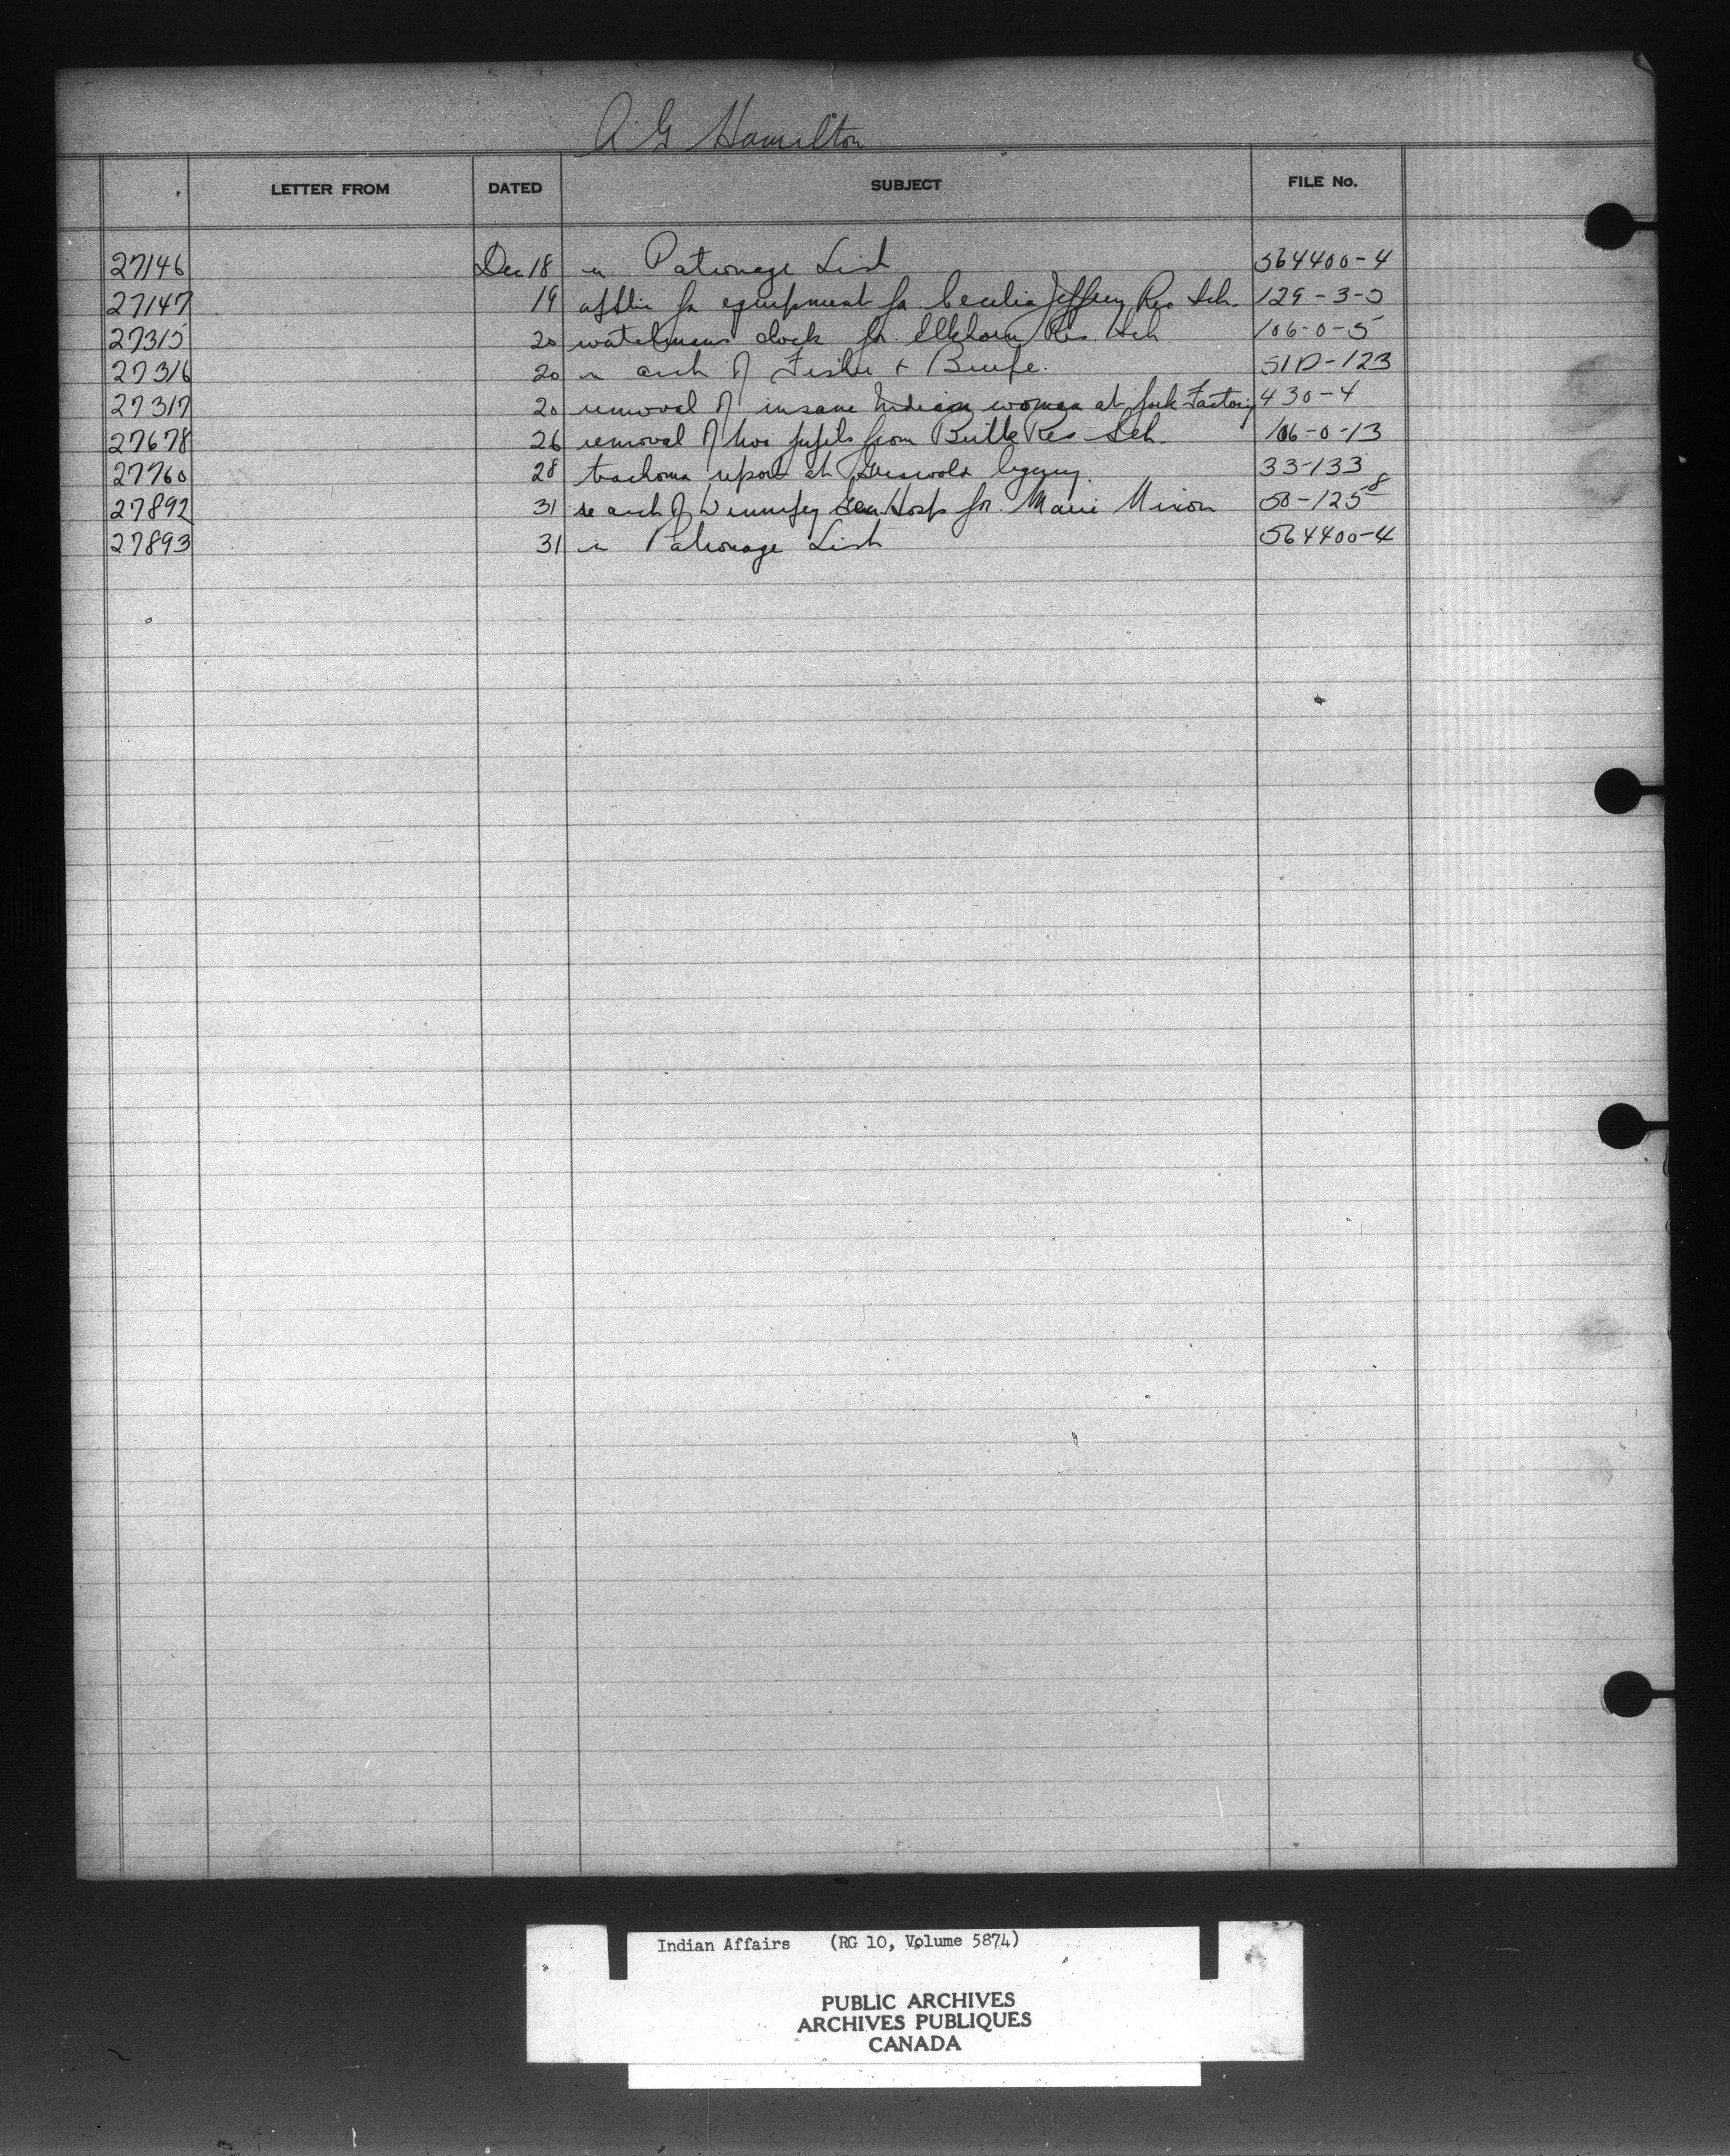 A G Hamilton
LETTER FROM DATED SUBJECT FILE No.
27146 Dec 18 re Patronage List 564400-4
27147 19 applic for equipment for Cecilia Jeffrey Res Sch. 129-3-5
27315 20 watchmans clock for Elkhorn Res Sch 106-0-5
27316 20 re acct of Fisher + 51D-123
27317 20 removal of insane Indian woman at York Factory 430-4
27678 26 removal of two pupils from Birtle Res Sch. 106-0-13
27760 28 trachoma report at Griswold Agency. 33-133
27892 31 re acct of Winnipeg Gen. Hosp for Marie 50-125-8
27893 31 re Patronage List 564400-4
Indian Affairs (RG 10, Volume 5874)
PUBLIC ARCHIVES
ARCHIVES PUBLIQUES
CANADA